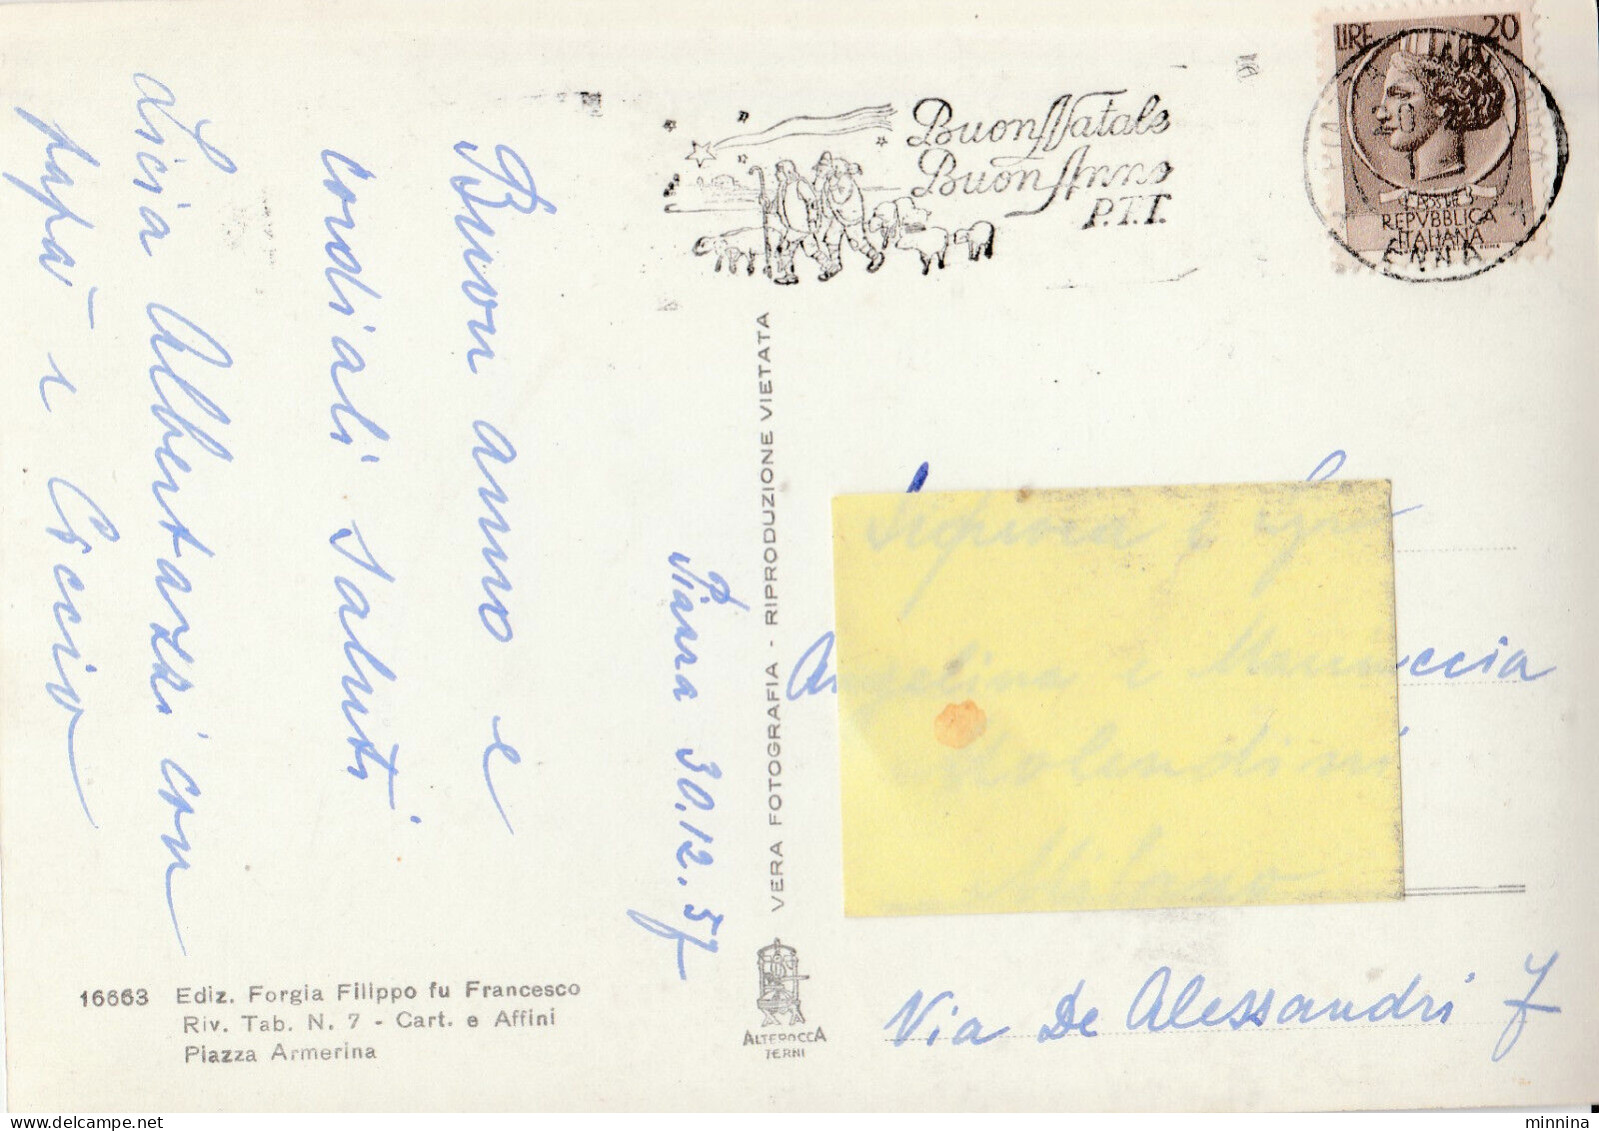 Buon anno e
cordiali saluti
Licia Albertazzi con
papà e Ciccio
Piazza 30.12.57
16663 Ediz. Forgia Filippo fu Francesco
Riv. Tab. N. 7 - Cart. e Affini
Piazza Armerina
VERA FOTOGRAFIA - RIPRODUZIONE VIETATA
ALTEROCCA
TERNI
Buon Natale
Buon Anno
P.T.T.
LIRE 20
POSTE
REPVBBLICA
ITALIANA
ENNA
Angelina e
Molendini
Milano
Via De Alessandri 7
minnina